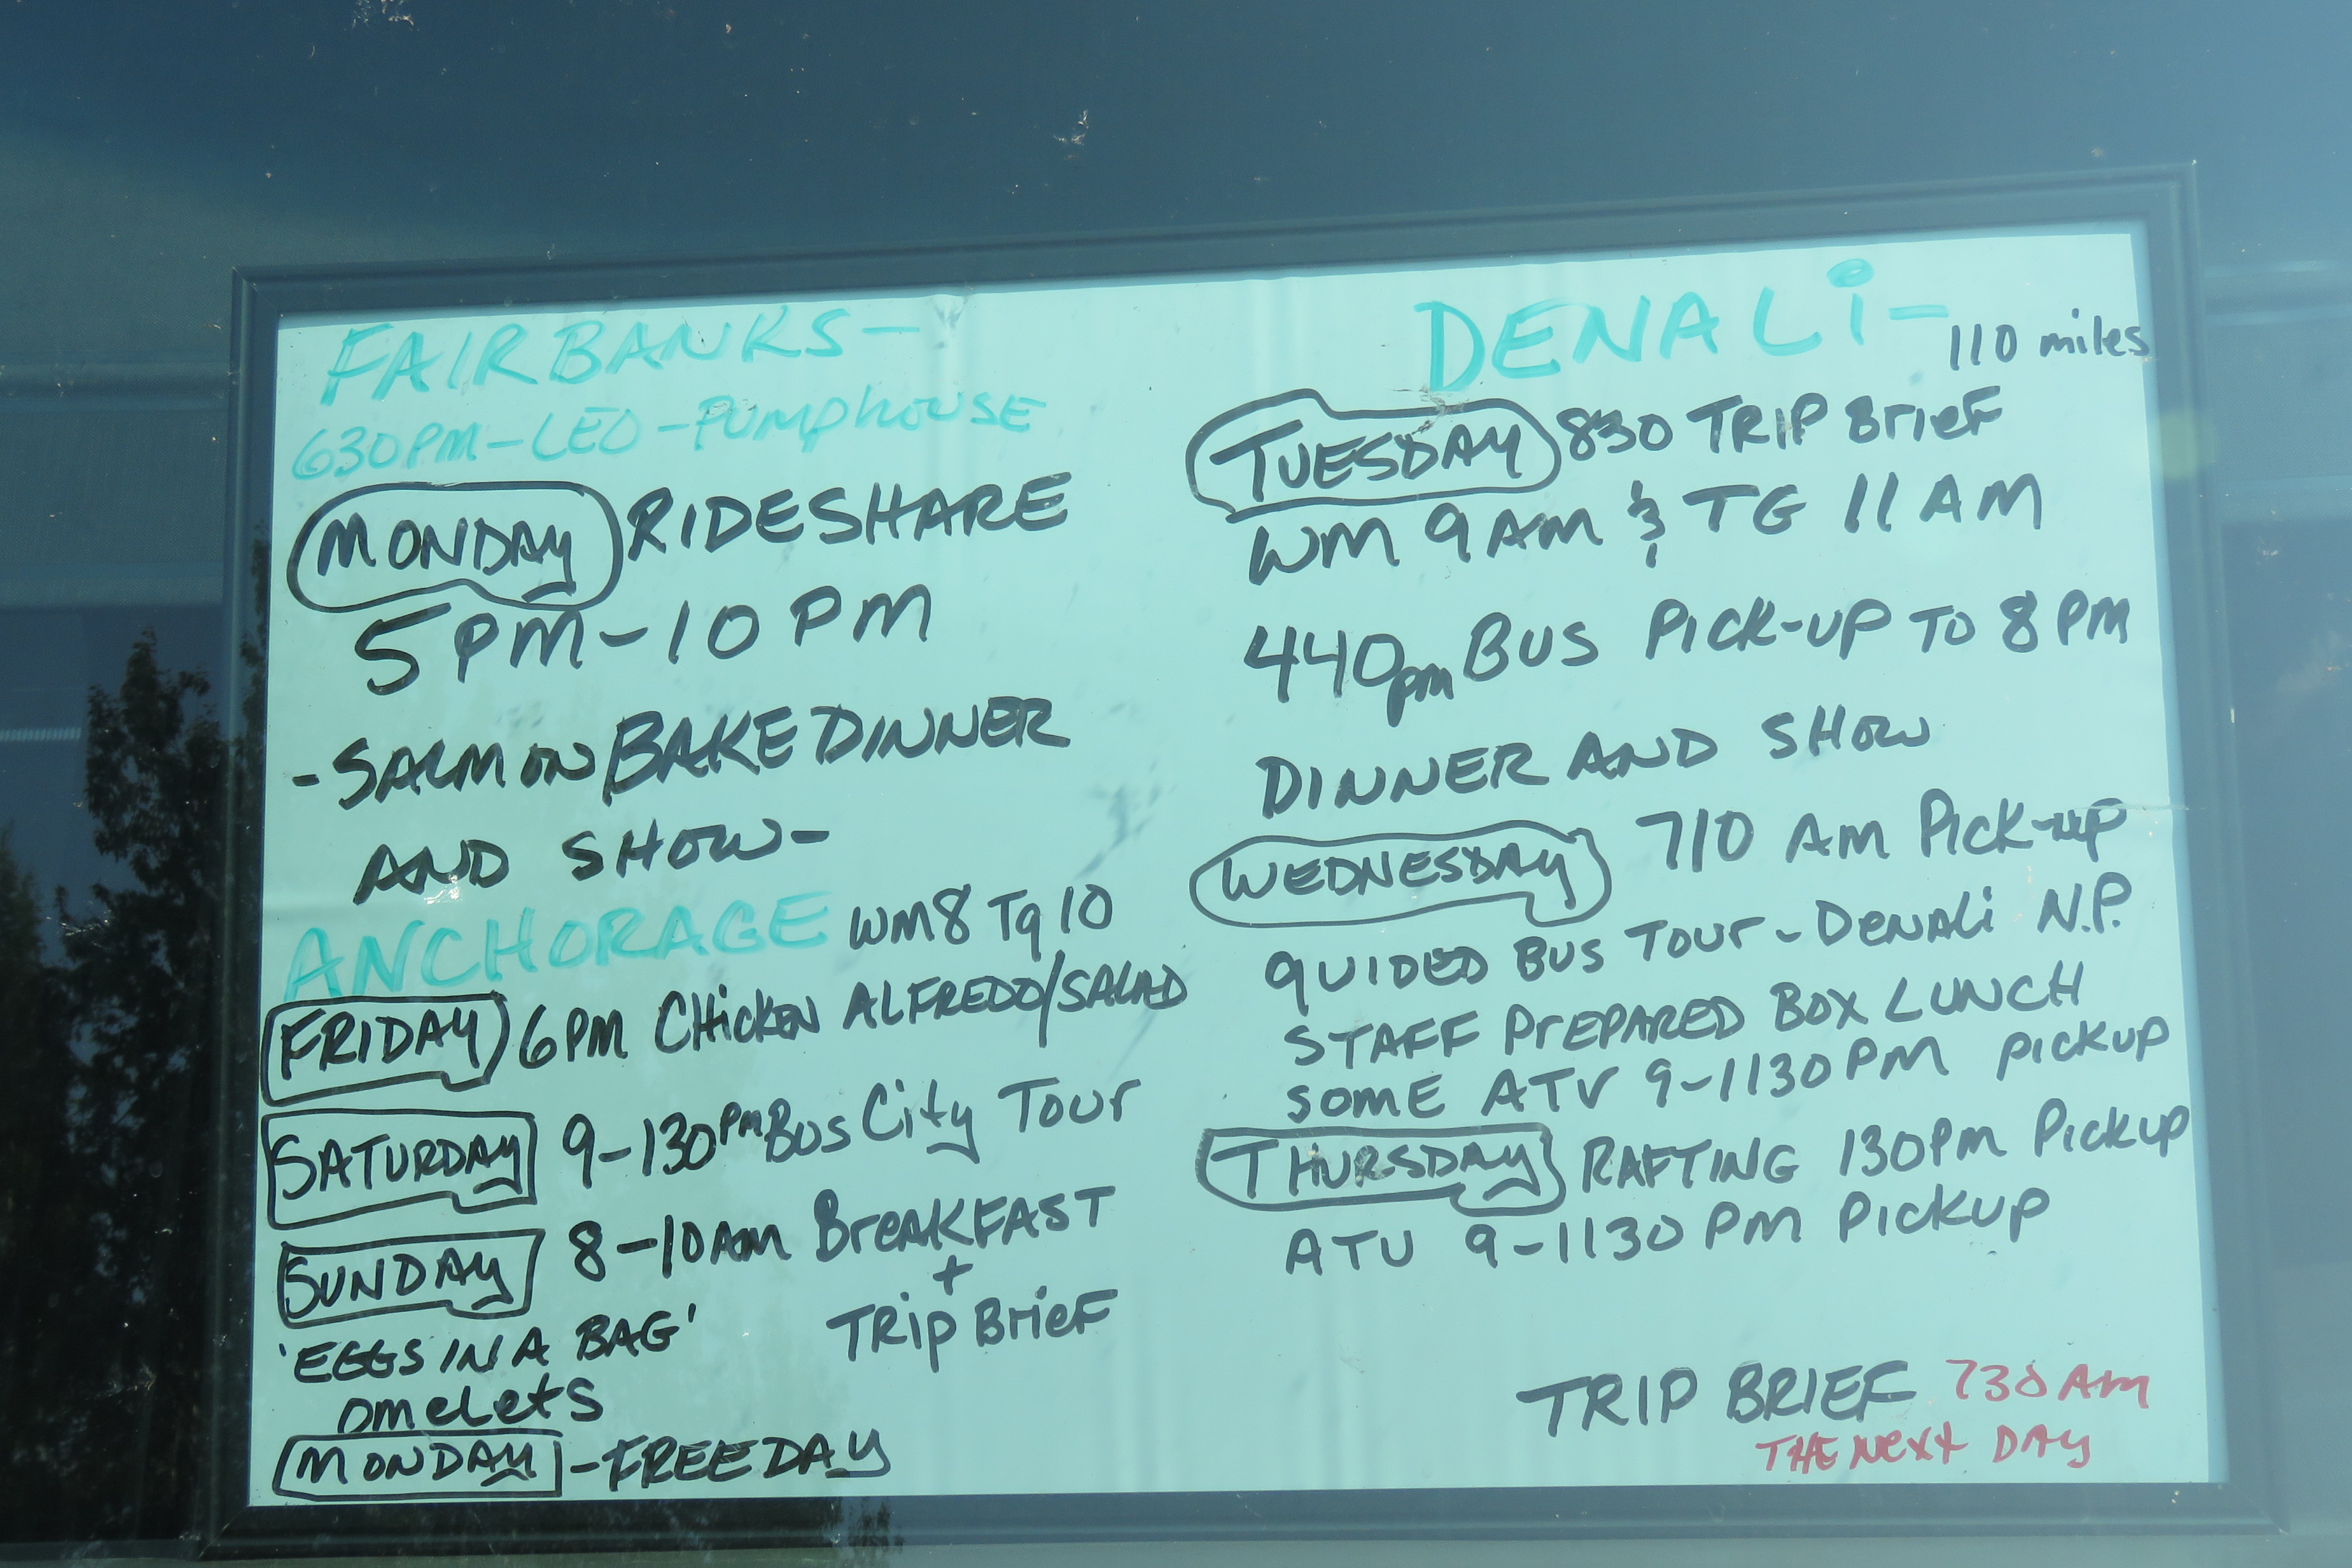 FAIRBANKS-
630PM-LEO-PUMPhOUSE
MONDAY RIDESHARE
5PM-10PM
-SALMON BAKE DINNER
AND SHOW-
ANCHORAGE WM8 Tg10
FRIDAY 6PM CHicKEN ALFREDO/SALAD
SATURDAY 9-130PM BUS City Tour
SUNDAY 8-10AM BreAKFAST
+
'EGGS IN A BAG' TRip BrieF
omelets
MONDAY -FREEDAY
DENALi-
110 miles
TUESDAY 830 TRIP BrieF
WM 9AM & TG 11AM
440pm BUS PicK-UP TO 8PM
DINNER AND SHOW
WEDNESDAY 710 AM Pick-up
gUIDED BUS TOUr-DeNALi N.P.
STAFF PrEPARED BOX LUNCH
SOME ATV 9-1130PM PickuP
THURSDAY RAFTING 130PM Pickup
ATU 9-1130PM Pickup
TRIP BRIEF 730 AM
THE Next DAY